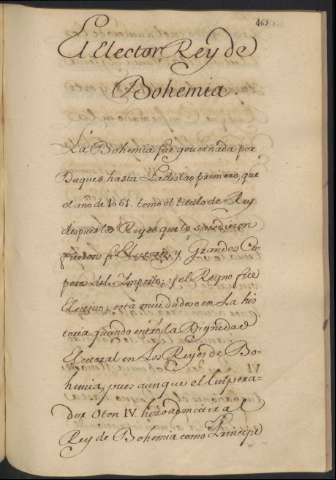 El Elector Rey de
Bohemia.
La Bohemia fue governada por
Duques hasta Ladislao primero, que
el año de 1061. tomó el titulo de Rey
despues los Reyes que le
fueron y Grandes Co
peros del Imperio; y el Reyno fue
Electivo; esta mui dudoso en la his
toria quando entró la Dignidad
Electoral en los Reyes de Bo-
hemia, pues aunque el Empera-
dor Oton IV. hizo admitir al
Rey de Bohemia como Principe